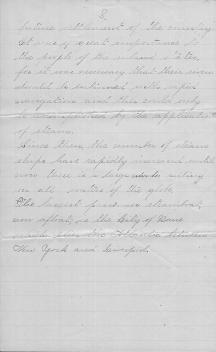 8.
future settlement of the country
It was of great importance to
the people of the inland states,
for it was necessary that their rivers
should be entirened with rapid
navigation and this could only
be accomplished by the application
of steam.
Since then the number of steam
ships have rapidly increased until
now there is a large number sailing
on all waters of the globe.
The largest passenger steamboat,
now afloat, is the City of Rome
which plies the Atlantic between
New York and Liverpool.